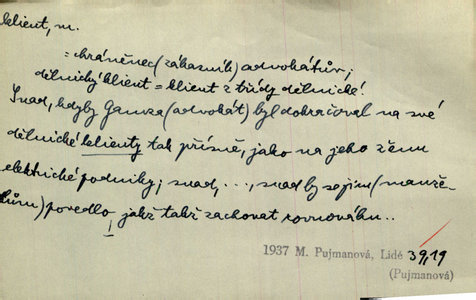 klient, m.
= chráněnec (zákazník) advokátův;
dělnický klient = klient z třídy dělnické.
Snad, kdyby Gamza (advokát) byl dokračoval na své
dělnické klienty tak přísně, jako na jeho ženu
elektrické podniky; snad, ..., snad by se jim (manže-
lům) povedlo jakž takž zachovat rovnováhu..
1937 M. Pujmanová, Lidé 39,19
(Pujmanová)